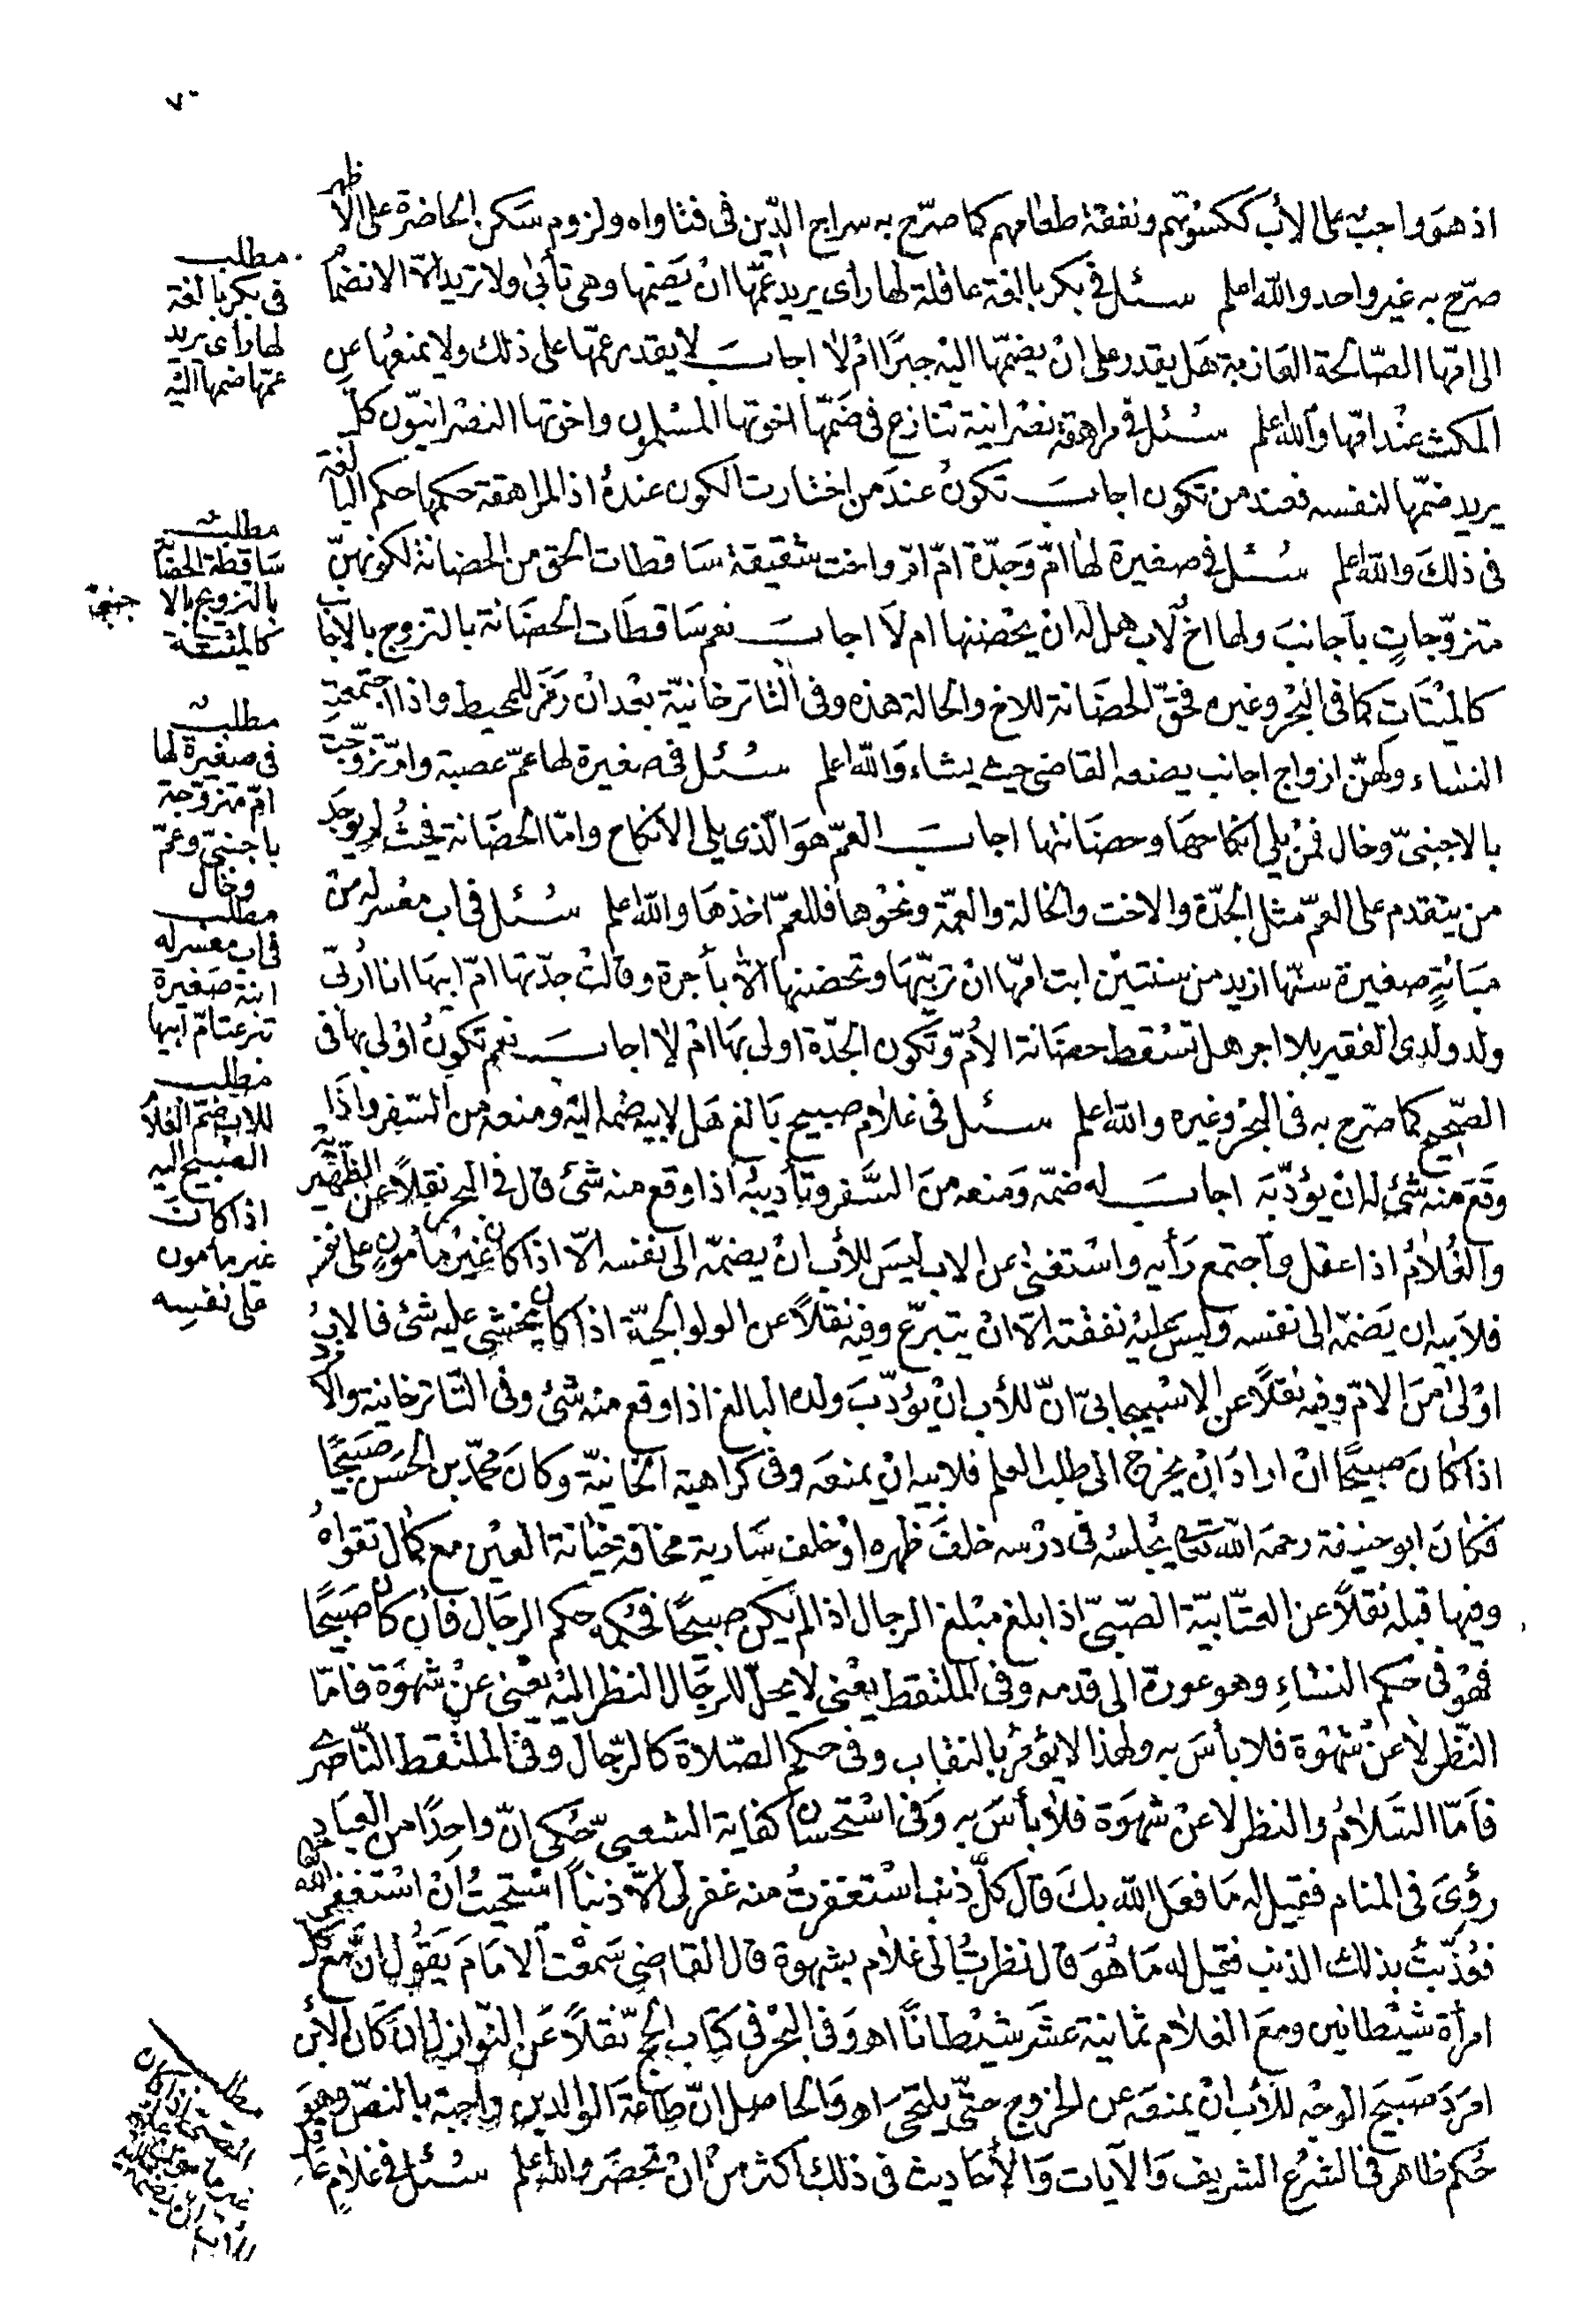 ٧٠
اذ هو واجب على الأب ككسوتهم ونفقة طعامهم كما صرّح به سراج الدّين فى فتاواه ولزوم سكن الحاضنة على الاظهر
صرّح به غير واحد والله اعلم سئل فى بكر بالغة عاقلة لها رأى يريد عمّها انْ يضمّها وهى تأبى ولا تريد الاّ الانضمام
الى امّها الصّالحة العازبة هل يقدر على انْ يضمّها اليه جبرًا امْ لا اجاب لا يقدر عمّها على ذلك ولا يمنعها عن
المكث عنْد امّها والله اعلم سئل فى مراهقة نصرانية تنازع فى ضمّها اخوتها المسلمون واخوتها النصرانيّون كلّ
يريد ضمّها لنفسه فعند من تكون اجاب تكون عند من اختارت الكون عنده اذ المراهقة حكمها حكم البالغة
فى ذلك والله اعلم سئل فى صغيرة لها امّ وجدّة امّ امّ واخت شقيقة ساقطات الحق من الحضانة لكونهنّ
متزوّجاتٍ بأجانب ولها اخ لأب هل له ان يحضنها ام لا اجاب نعم ساقطات الحضانة بالتزوج بالاجانب
كالميتات كما فى البحر وغيره فحقّ الحضانة للاخ والحالة هذه وفى التاترخانيّة بعد انْ رمز للمحيط واذا اجتمعت
النساء ولهنّ ازواج اجانب يضعه القاضى حيث يشاء والله اعلم سئل فى صغيرة لها عمّ عصبة وامّ تزوّجت
بالاجنبىّ وخال فمنْ يلى انكاحها وحضانتها اجاب العمّ هو الّذى يلى الانكاح وامّا الحضانة فحيثُ لم يوجد
من يتقدم على العمّ مثل الجدّة والاخت والخالة والعمّة ونحوها فللعمّ اخذها والله اعلم سئل فى اب معسر له من
مبانةٍ صغيرة سنّها ازيد من سنتيْن ابت امّها انْ تربّيها وتحضنها الاّ بأجرة وقالتْ جدّتها امّ ابيها انا اُربّى
ولد ولدى الفقير بلا اجر هل تسْقط حضانة الاُمّ وتكون الجدّة اولى بها امْ لا اجاب نعم تكون اوْلى بها فى
الصّحيح كما صرّح به فى البحْر وغيره والله اعلم سئل فى غلام صبيح بالغ هل لابيه ضمه اليه ومنعه من السّفر واذا
وقع منه شئ له ان يؤدّبه اجاب له ضمّه ومنعه من السّفر وتأديبه اذا وقع منه شئ قال فى البحر نقلاً عن الظّهيريّة
والغلامُ اذا عقل واجتمع رأيه واسْتغنى عن الاب ليس للأب انْ يضمّه الى نفسه الاّ اذا كان غيْر مأمون على نفسه
فلأبيه ان يضمّه الى نفسه وليس عليْه نفقته الاّ انْ يتبرّع وفيه نقلاً عن الولوالجيّة اذا كان يخشى عليه شئ فالابُ
اوْلى من الامّ وفيه نقلاً عن الاسْبيجابىّ انّ للأب انْ يؤدّب ولده البالغ اذا وقع منه شئ وفى التّاترخانية والأمرد
اذا كان صبيحًا انْ اراد انْ يخرج الى طلب العلم فلابيه انْ يمنعه وفى كراهية الخانيّة وكان محمّد بن الحسن صبيحًا
فكان ابو حنيفة رحمه الله تعالى يُجلسُه فى درْسه خلف ظهره اوْ خلف سارية مخافة خيانة العين مع كمال تقواهُ
وفيها قبله نقلاً عن العتّابيّة الصّبىّ اذا بلغ مبْلغ الرجال اذا لم يكن صبيحًا فحُكمه حكم الرجال فان كان صبيحًا
فهْو فى حكم النساءِ وهو عورة الى قدمه وفى الملتقط يعْنى لا يحلّ للرّجال النظر اليْه يعْنى عنْ شهْوة فامّا
النّظر لا عنْ شهْوة فلا بأس به ولهذا لا يؤمرُ بالنقاب وفى حكم الصّلاة كالرّجال وفى الملتقط النّاصرى
فأمّا السّلامُ والنظر لا عنْ شهْوة فلا بأسَ به وفى اسْتحسان كفاية الشعبىّ حُكى انّ واحدًا من العبّاد
رؤى فى المنام فقيل له ما فعل الله بك قال كلّ ذنب اسْتغفرتُ منه غفر لى الاّ ذنباً اسْتحيتُ انْ اسْتغفر الله منه
فعُذّبتُ بذلك الذنب فقيل له ما هُو قال نظرتُ الى غلام بشهوة قال القاضى سمعْت الامام يقول انّ مع كل
امرأة شيْطانين ومع الغلام ثمانية عشر شيْطاناً اهـ وفى البحْر فى كتاب الحجّ نقلاً عن النّوازل ان كان الابْن
امرد صبيح الوجْه للأب انْ يمنعه عن الخروج حتّى يلتحى اهـ والحاصل انّ طاعة الوالدين واجبة بالنصّ وهو
حُكم ظاهر فى الشرْع الشريف والآيات والأحاديث فى ذلك أكثر منْ انْ تحصر والله اعلم سئل فى غلام عاقل
مطلب
فى بكر بالغة
لها رأى يريد
عمّها ضمها اليْه
مطلب
ساقطة الحضا
بالتزويج بالا جنبى
كالميتة
مطلب
فى صغيرة لها
امّ متزوّجة
بأجنبىّ وعمّ
وخال
مطلب
فى اب معسر له
ابنة صغيرة
تنزع امّ ابيها
مطلب
للاب ضمّ الغلام
الصبيح اليه
اذا كان
غير مامون
على نفسه
مطلب